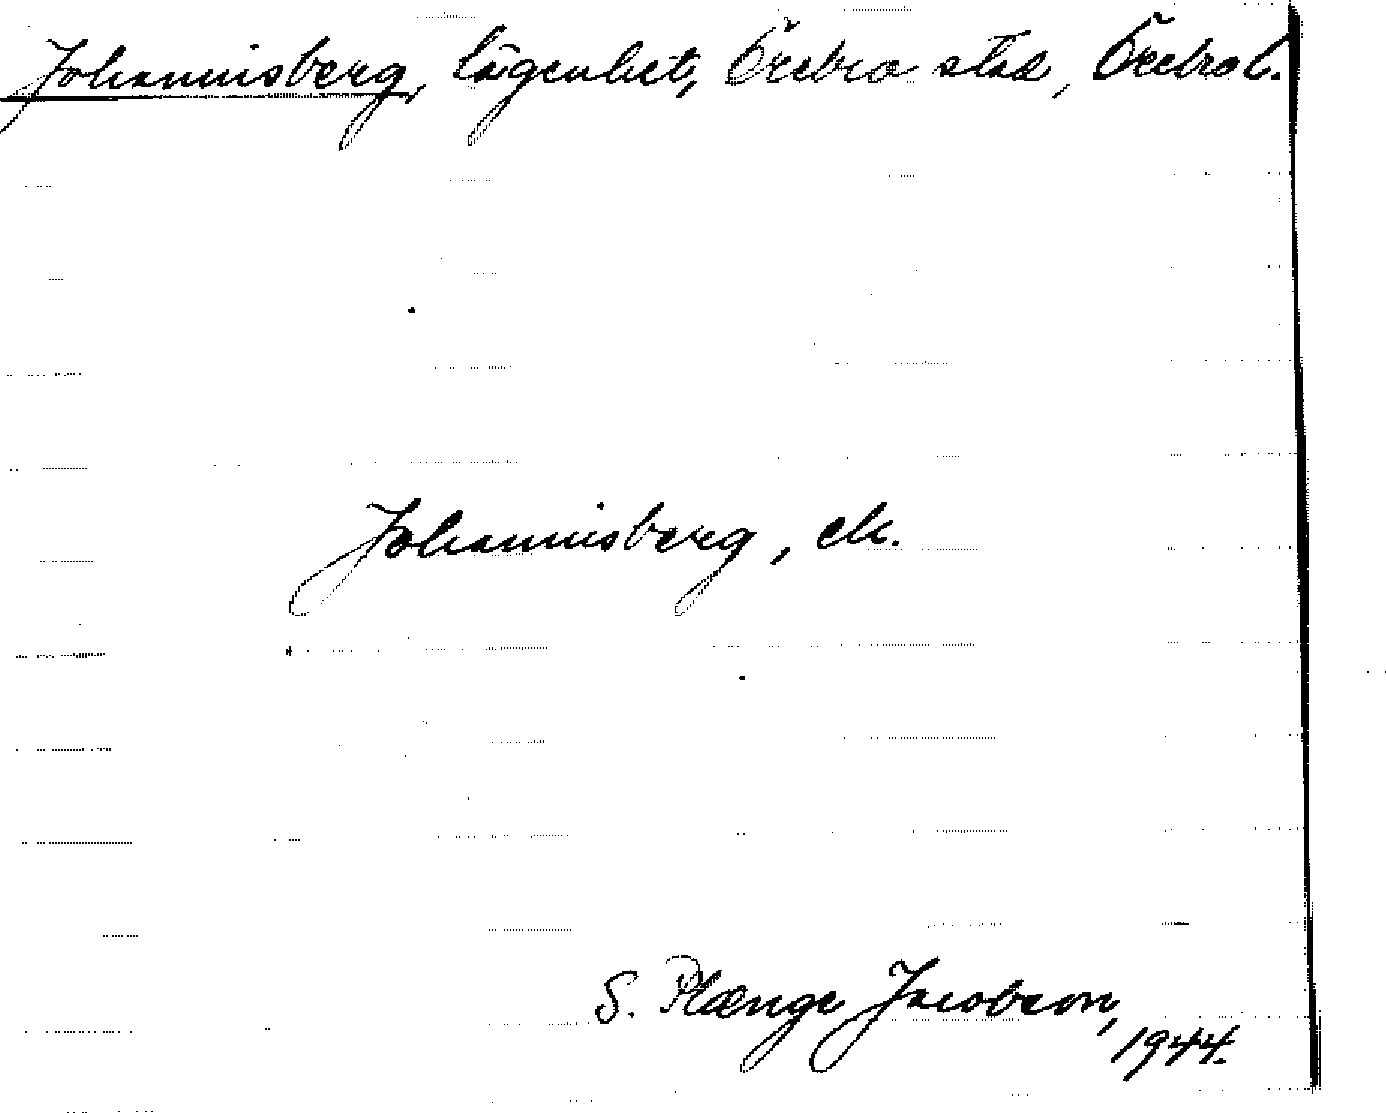 Johannisberg, lägenhet, Örebro stad, Örebro l.
Johannisberg, ek.
S. Plænge Jacobson,
1944.